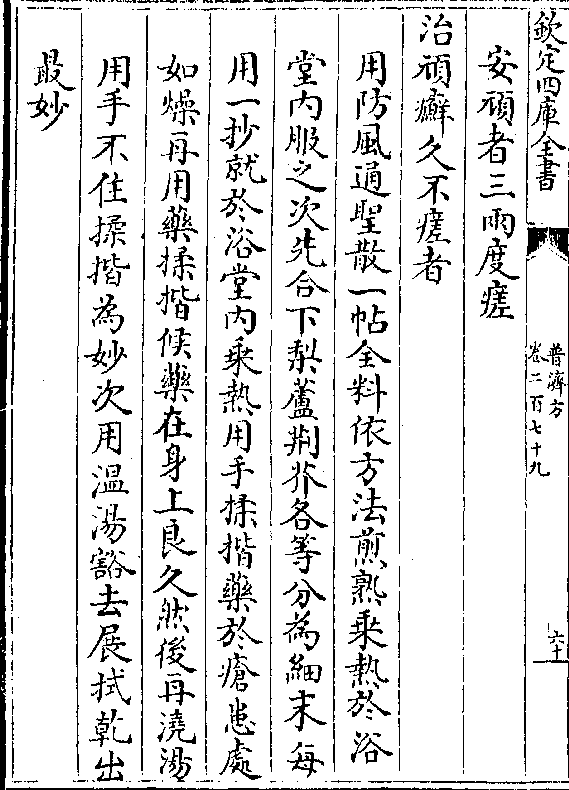 欽定四庫全書
普濟方
卷二百七十九
六十
安頑者三兩度瘥
治頑癬久不瘥者
用防風通聖散一帖全料依方法煎熟乗熱於浴
堂内服之次先合下梨蘆荆芥各等分為細末每
用一抄就於浴堂内乗熱用手揉揩藥於瘡患處
如燥再用藥揉揩候藥在身上良久然後再澆湯
用手不住揉揩為妙次用溫湯豁去展拭乾出
最妙